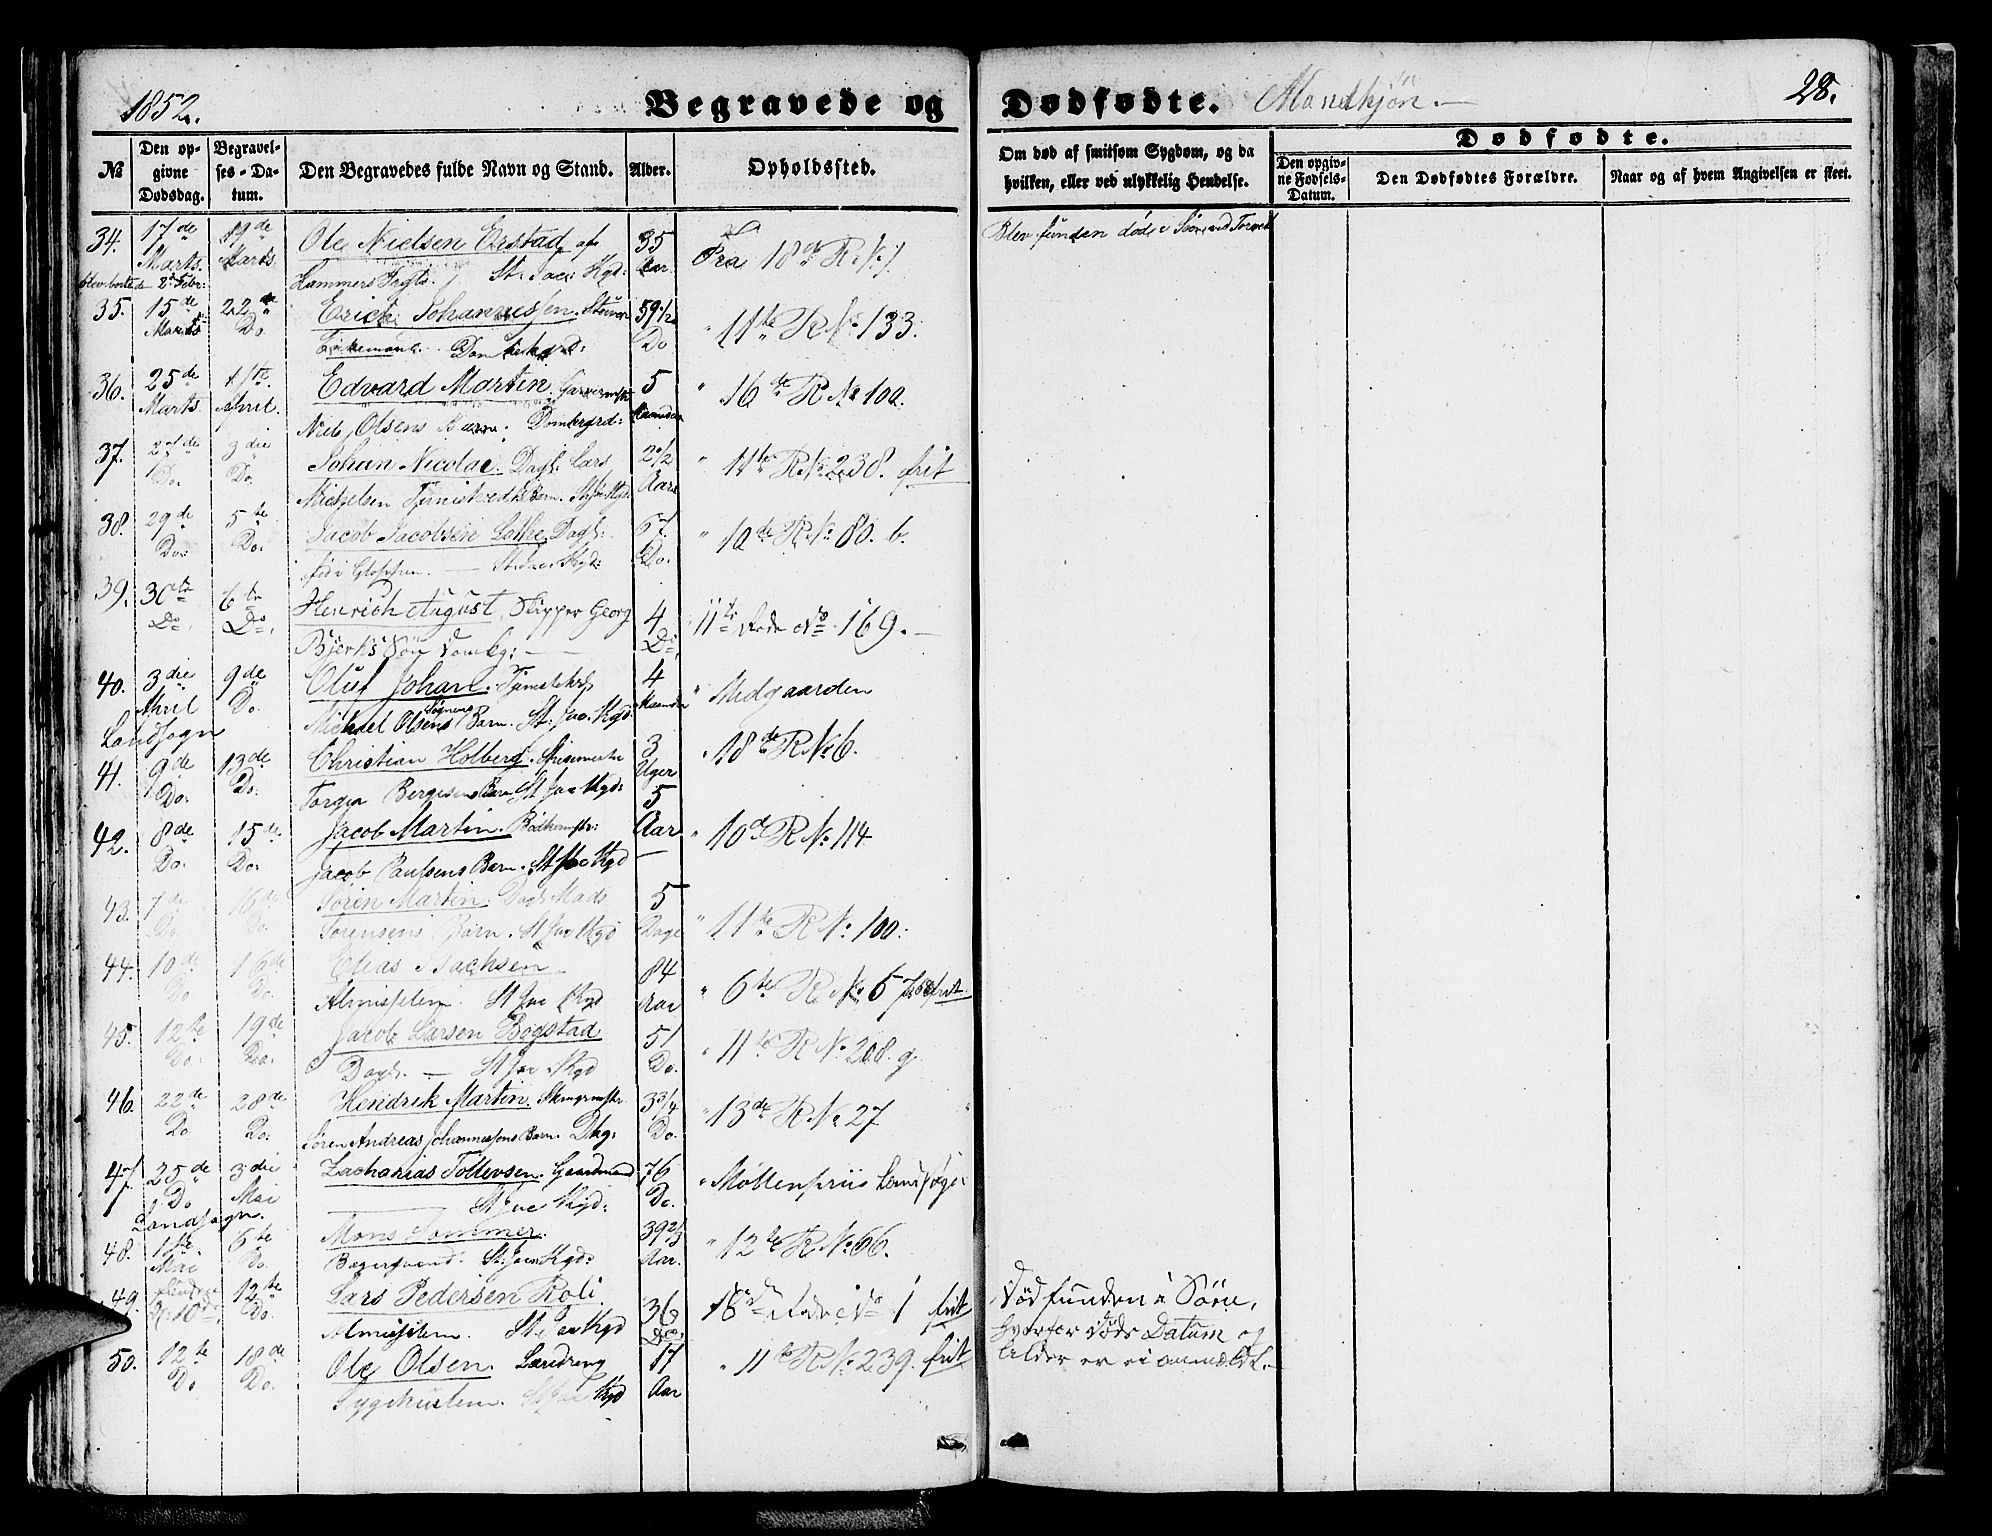 1852.
Begravede og Dødfødte. Mandkjøn.
28.
№
Den opgivne Dødsdag.
Begravelses-Datum.
Den Begravedes fulde Navn og Stand.
Alder.
Opholdssted.
Om død af smitsom Sygdom, og da hvilken, eller ved ulykkelig Hendelse.
Dødfødte.
Den opgivne Fødsels-Datum.
Den Dødfødtes Forældre.
Naar og af hvem Angivelsen er skeet.
34. 17de Marts. 19de Marts Ole Nielsen Erstad af 35 Aar. Fra 18de R. № 1. Blev funden død i Søen ved Torvet
Hammers St: Jac: Kgd:
35. 15de Marts 22de Do. Erich Johannessen. 59 1/2 Do " 11te R № 133.
Enkemand. Domkirkegrd:
36. 25de Marts 1ste April. Edvard Martin. Garvermstr 5 Maaneder " 16de R № 100.
Niels Olsens Barn. Domkrgrd:
37. 27de Do. 3die Do. Johan Nicolai. Dagl: Lars 2 1/2 Aar " 11te R. № 238. frit
Michelsen Barn. St Jac Kgd.
38. 29de Do. 5te Do. Jacob Jacobsen Lothe Dagl: 67. Do. " 10de R. № 80. b.
fød i Gloppen. — St. Jac. Kgd:
39. 30te Do 6te Do. Henrich August, Skipper Georg 4 Do, 11te Rode № 169. —
Bjerks Søn Domkg: —
40. 3die April 9de Do. Oluf Johan. Tjenestekrl 4 Maaneder " Midgaarden
Landsogn Michael Olsens Barn. St. Jac. Kgd.
41. 9de Do. 13de Do. Christian Holberg. Spisemester 3 Uger " 18de R № 6.
Torger Bergesens Barn St Jac Kgd:
42. 8de Do. 15de Do. Jacob Martin. Bødkermstr: 5 Aar " 10de R № 114
Jacob Paulsens Barn. St Jac Kgd
43. 7de Do. 16de Do. Søren Martin. Dagl: Mads 5 Dage " 11te R № 100:
Sørensens Barn. St Jac Kgd
44. 10de Do 16de Do. Elias Isachsen 84 Aar " 6te R. № 5 frit.
Almisselem. St Jac Kgd
45. 12te Do. 19de Do. Jacob Larsen Bogstad 51 Do. " 11te R № 208. g.
Dagl. — St Jac Kgd
46. 22de Do 28de Do. Hendrik Martin. 3 3/4 Do. " 13de R № 27
Søren Andreas Johannessens Barn. Dkg:
47. 25de Do 3die Mai Zacharias Tollevsen. Gaardmand 76 Do. " Møllenpriis Landsogn
Landsogn. St Jac Kgd:
48. 1ste Mai 6te Do. Mons Sommer. 39 2/3 Aar. " 12te R № 66.
Bagersvend. St. Jac Kgd:
49. 10de 12te Do. Lars Pedersen Roli. 36 Do. 18de Rode № 1 frit Død funden i Søen,
Almisselem. St Jac Kgd hvorfor Døds Datum og
50. 12te Do 18de Do. Ole Olsen. Læredreng 17 Aar " 11te R № 239. frit Alder er ei anmeldt. —
Sygehuslem. St Jac Kgd